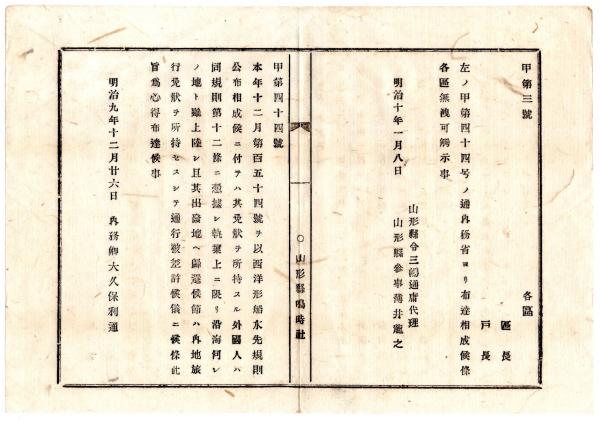 甲第三號
各區
區長
戸長
左ノ甲第四十四号ノ通內務省ヨリ布達相成候條
各區無洩可觸示事
明治十年一月八日
山形縣令三島通庸代理
山形縣參事薄井龍之
○山形縣鳴時社
甲第四十四號
本年十二月第百五十四號ヲ以西洋形船水先規則
公布相成候ニ付テハ其免狀ヲ所持スル外國人ハ
同規則第十二條ニ憑據シ執業上ニ限リ沿海何レ
ノ地ト雖上陸シ且其出發地ヘ歸還候節ハ內地旅
行免狀ヲ所持セスシテ通行被差許候儀ニ候條此
旨爲心得布達候事
明治九年十二月廿六日 內務卿大久保利通